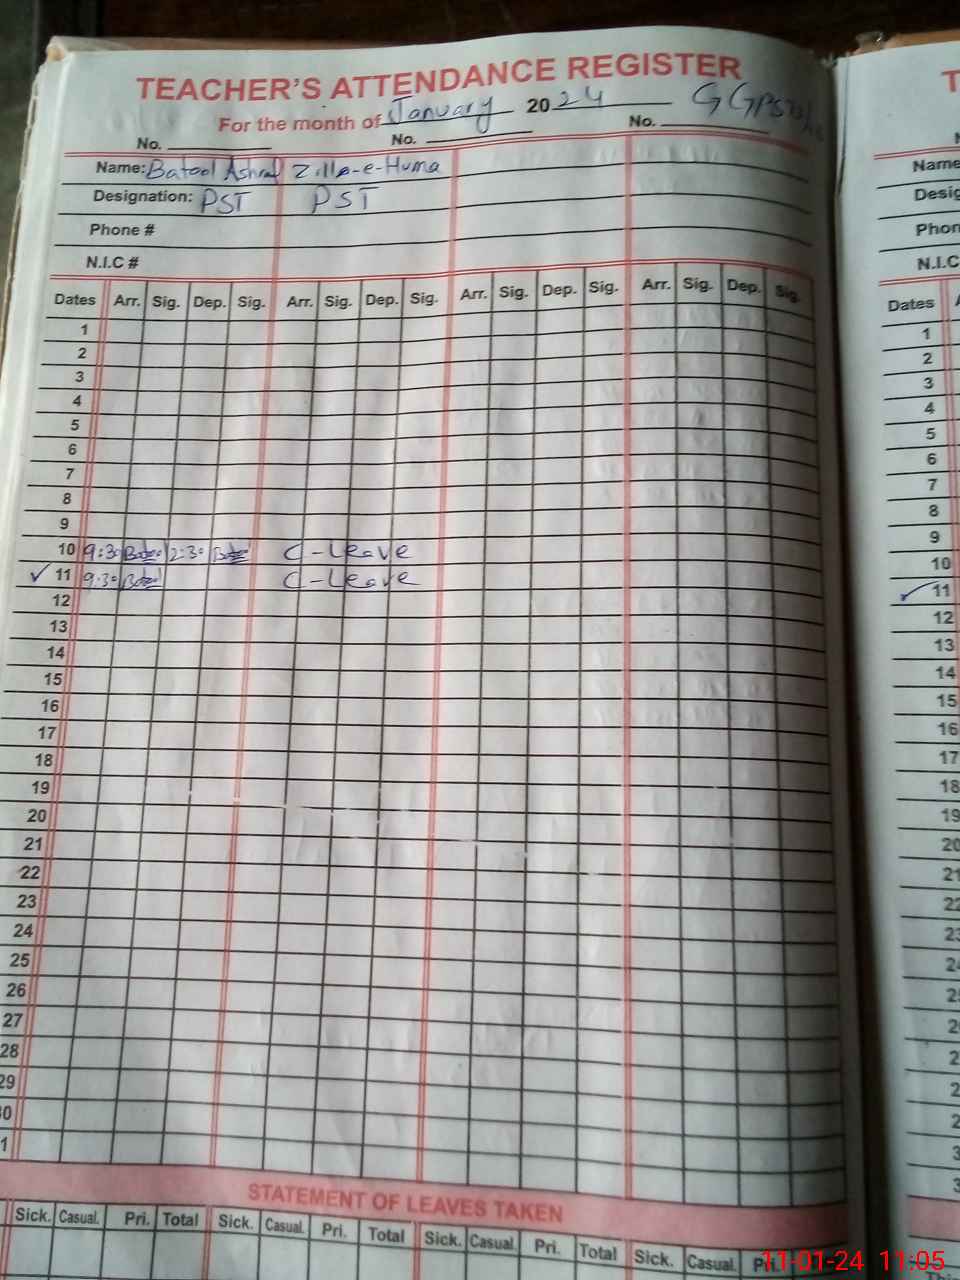 TEACHER'S ATTENDANCE REGISTER T
For the month of January 2024
No. No. No.
Name: Batool Ashraf Zille-e-Huma Name
Designation: PST PST Desig
Phone # Phon
N.I.C # N.I.C
Dates Arr. Sig. Dep. Sig. Arr. Sig. Dep. Sig. Arr. Sig. Dep. Sig. Arr. Sig. Dep. Sig. Dates
1 1
2 2
3 3
4 4
5 5
6 6
7 7
8 8
9 9
10 9:30 Batool 2:30 Batool C-Leave 10
✓ 11 9:30 Batool C-Leave ✓ 11
12 12
13 13
14 14
15 15
16 16
17 17
18 18
19 19
20 20
21 21
22 22
23 23
24 24
25 2
26 2
27 2
28 2
29 2
0 2
1 3
3
STATEMENT OF LEAVES TAKEN
Sick. Casual. Pri. Total Sick. Casual. Pri. Total Sick. Casual. Pri. Total Sick. Casual. Pri.
11-01-24 11:05